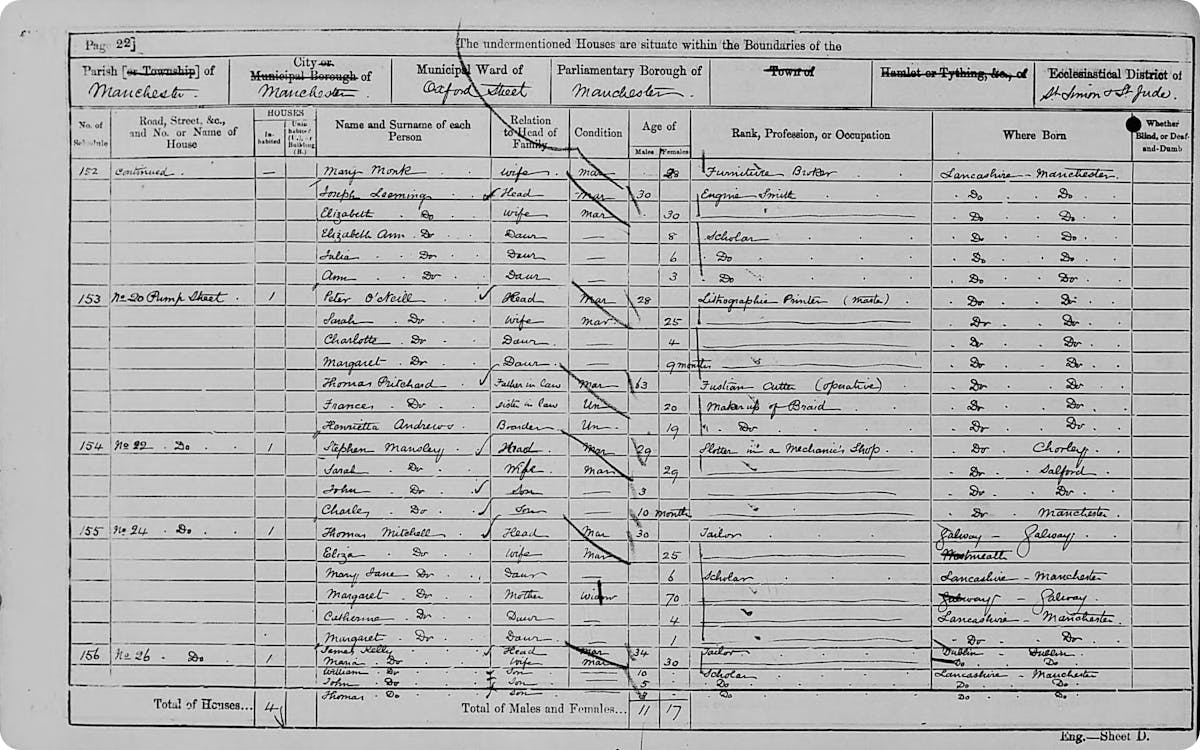 Page 22] The undermentioned Houses are situate within the Boundaries of the
Parish [or Township] of Manchester.
City or Municipal Borough of Manchester.
Municipal Ward of Oxford Street
Parliamentary Borough of Manchester.
Town of
Hamlet or Tything, &c., of
Ecclesiastical District of St. Simon & St. Jude.
No. of Schedule
Road, Street, &c., and No. or Name of House
HOUSES
Inhabited
Uninhabited (U.), or Building (B.)
Name and Surname of each Person
Relation to Head of Family
Condition
Age of
Males Females
Rank, Profession, or Occupation
Where Born
Whether Blind, or Deaf-and-Dumb
152 continued — Mary Monk wife Mar 28 Furniture Broker Lancashire - Manchester
Joseph Leeming Head Mar 30 Engine Smith Do Do
Elizabeth Do wife Mar 30 Do Do
Elizabeth Ann Do Daur — 8 Scholar Do Do
Julia Do Daur — 6 Do Do Do
Ann Do Daur — 3 Do Do Do
153 No 20 Pump Street 1 Peter O'Neill Head Mar 28 Lithographic Printer (master) Do Do
Sarah Do Wife Mar 25 Do Do
Charlotte Do Daur — 4 Do Do
Margaret Do Daur — 9 months Do Do
Thomas Pritchard Father in law Mar 63 Fustian Cutter (operative) Do Do
Frances Do sister in law Un 20 Maker up of Braid Do Do
Henrietta Andrews Boarder Un 19 " Do Do Do
154 No 22 Do 1 Stephen Mansley Head Mar 29 Slotter in a Mechanic's Shop Do Chorley
Sarah Do Wife Mar 29 Do Salford
John Do Son — 3 Do Do
Charley Do Son — 10 months Do Manchester
155 No 24 Do 1 Thomas Mitchell Head Mar 30 Tailor Galway - Galway
Eliza Do Wife Mar 25 Westmeath
Mary Jane Do Daur — 6 Scholar Lancashire - Manchester
Margaret Do Mother Widow 70 Galway - Galway
Catherine Do Daur — 4 Lancashire - Manchester
Margaret Do Daur — 1 Do Do
156 No 26 Do 1 James Kelly Head Mar 34 Tailor Dublin - Dublin
Maria Do Wife Mar 30 Do Do
William Do Son — 10 Scholar Lancashire - Manchester
John Do Son — 5 Do Do Do
Thomas Do Son — 3 Do Do Do
Total of Houses... 4 Total of Males and Females... 11 17
Eng.—Sheet D.